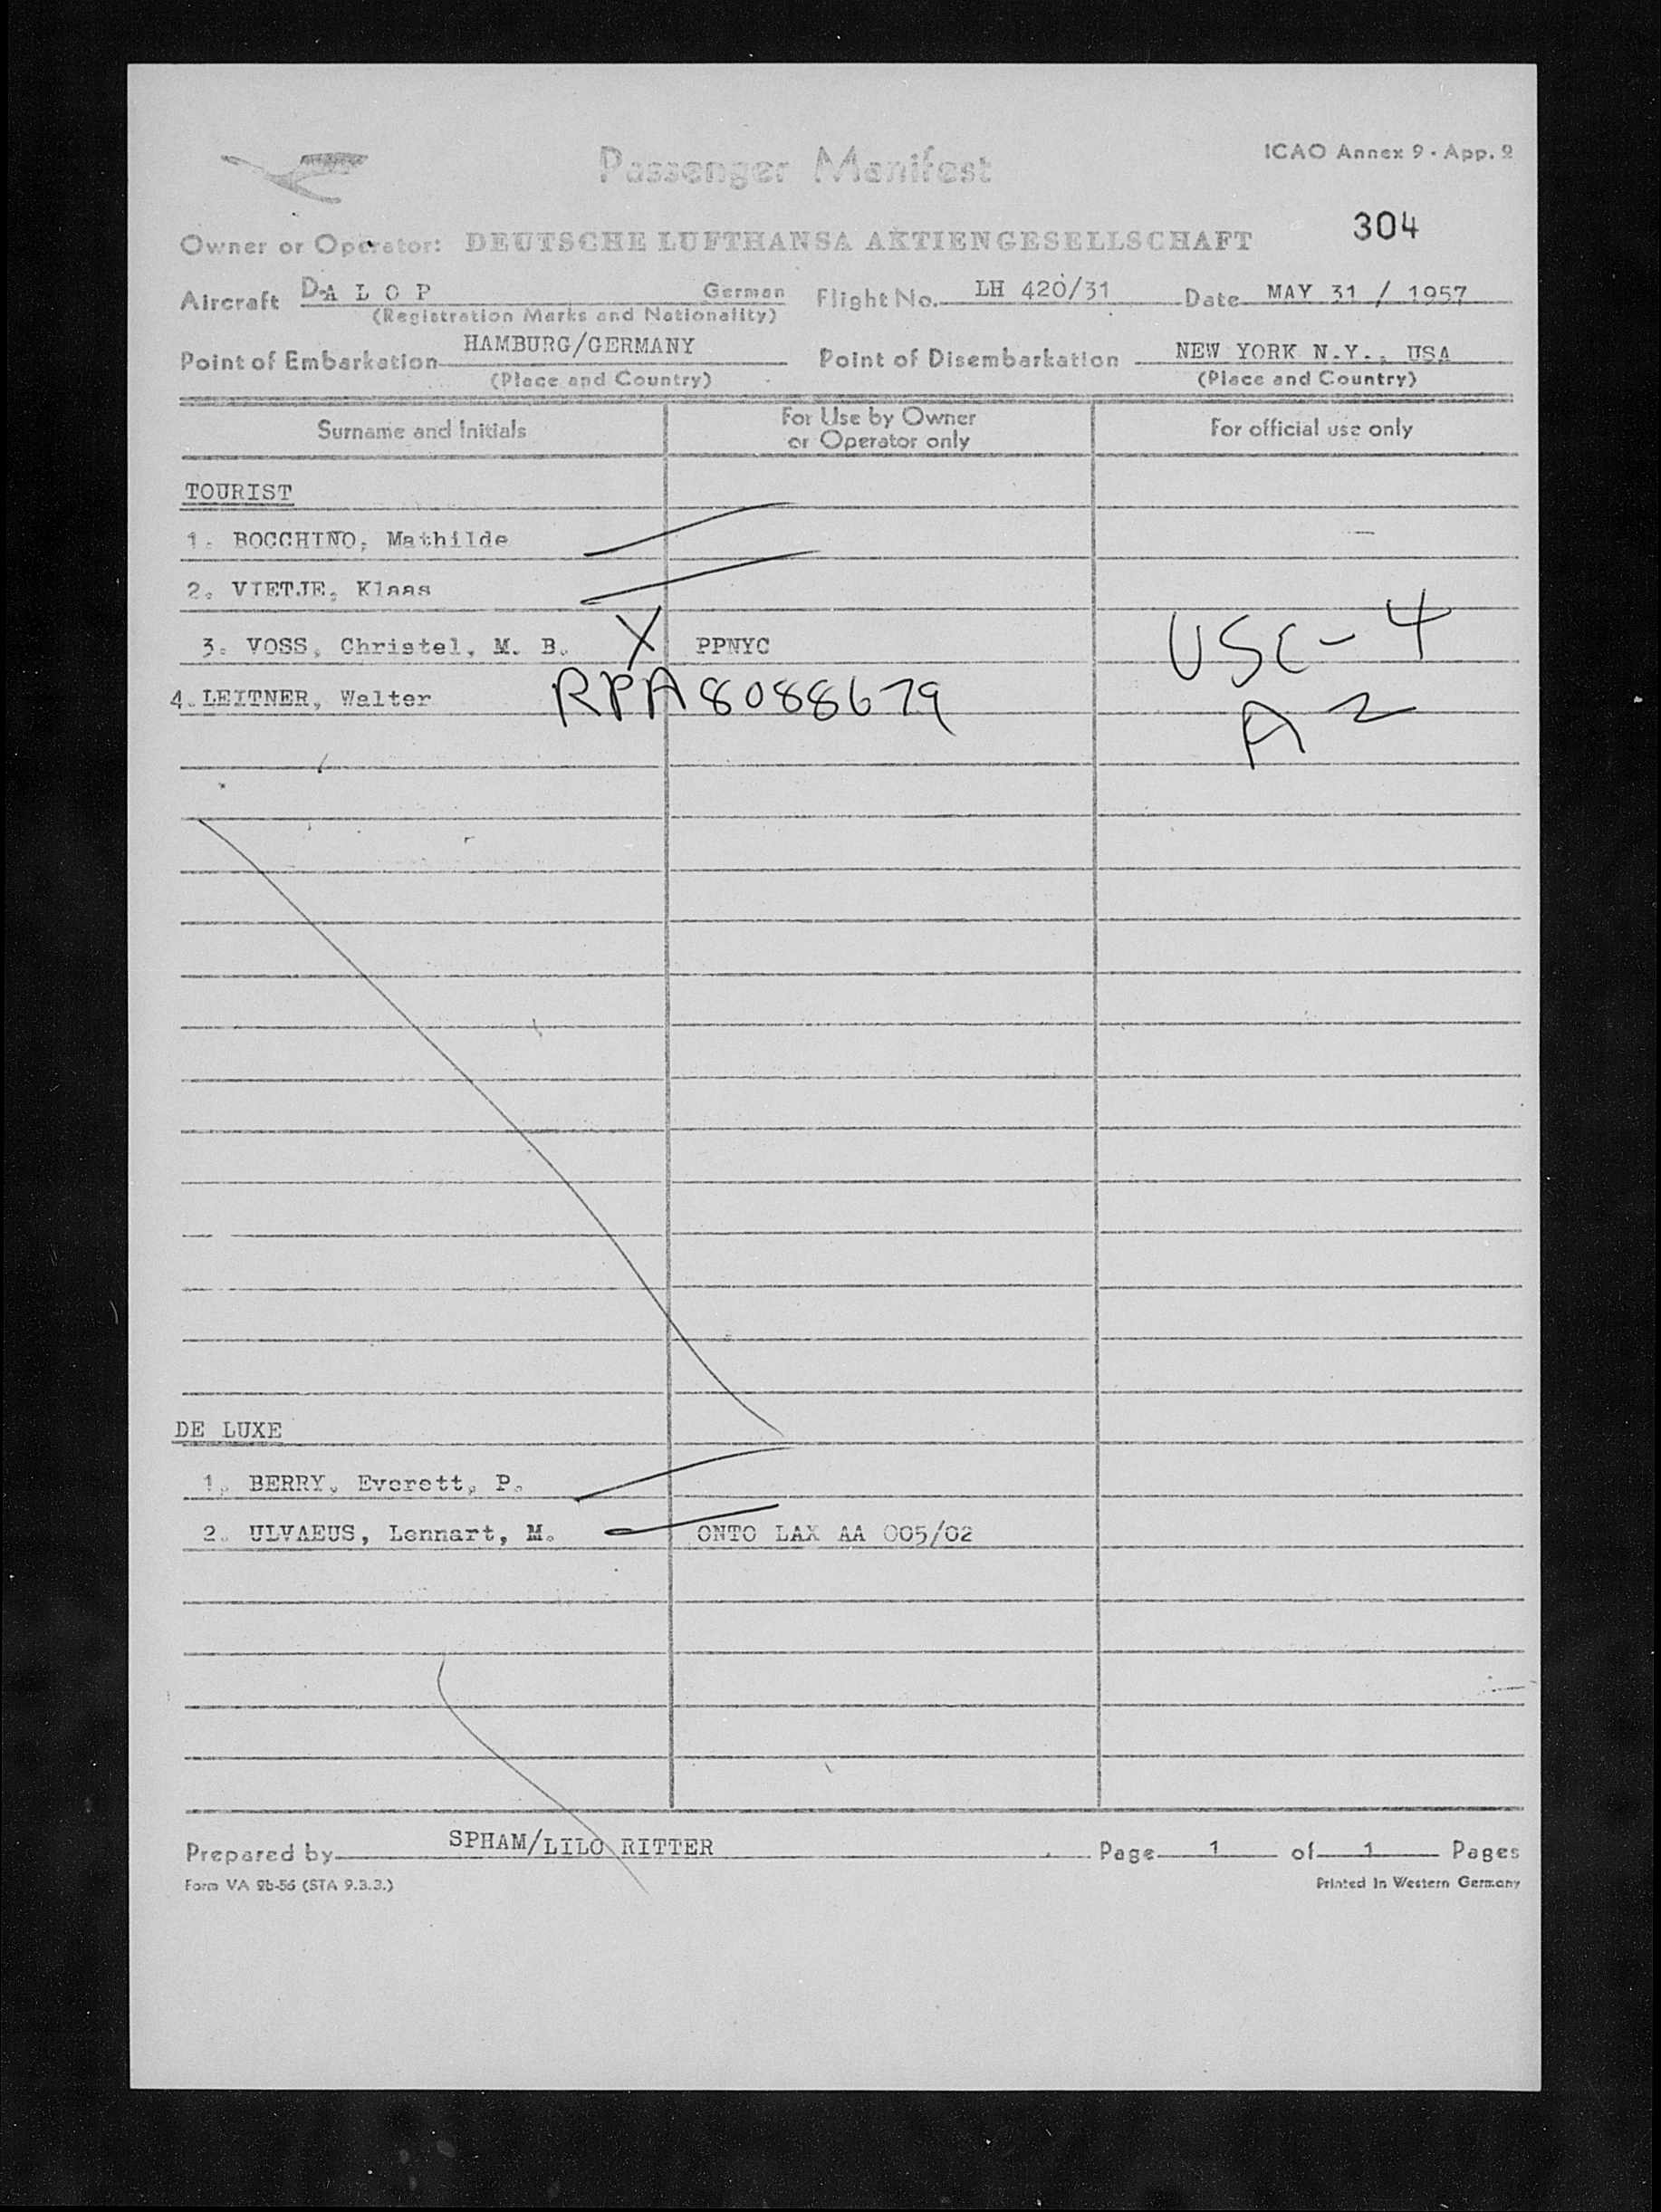 Passenger Manifest
ICAO Annex 9 - App. 2
304
Owner or Operator: DEUTSCHE LUFTHANSA AKTIENGESELLSCHAFT
Aircraft D-A L O P German Flight No. LH 420/31 Date MAY 31 / 1957
(Registration Marks and Nationality)
Point of Embarkation HAMBURG/GERMANY Point of Disembarkation NEW YORK N.Y., USA
(Place and Country) (Place and Country)
Surname and Initials For Use by Owner or Operator only For official use only
TOURIST
1. BOCCHINO, Mathilde
2. VIETJE, Klaas
3. VOSS, Christel, M. B. X PPNYC USC-4
4. LEITNER, Walter RPA8088679 A 2
DE LUXE
1. BERRY, Everett, P.
2. ULVAEUS, Lennart, M. ONTO LAX AA 005/02
Prepared by SPHAM/LILO RITTER Page 1 of 1 Pages
Form VA 2b-56 (STA 9.3.3.) Printed in Western Germany